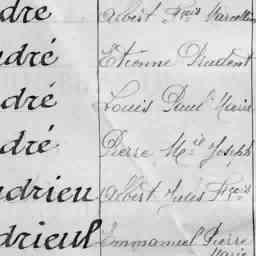 dré Albert Fçois Marcellin
ndré Etienne Prudent
dré Louis Paul Marie
dré Pierre Mie Joseph
ndrieu Albert Jules Fçois
ndrieul Emmanuel Pierre
Marie